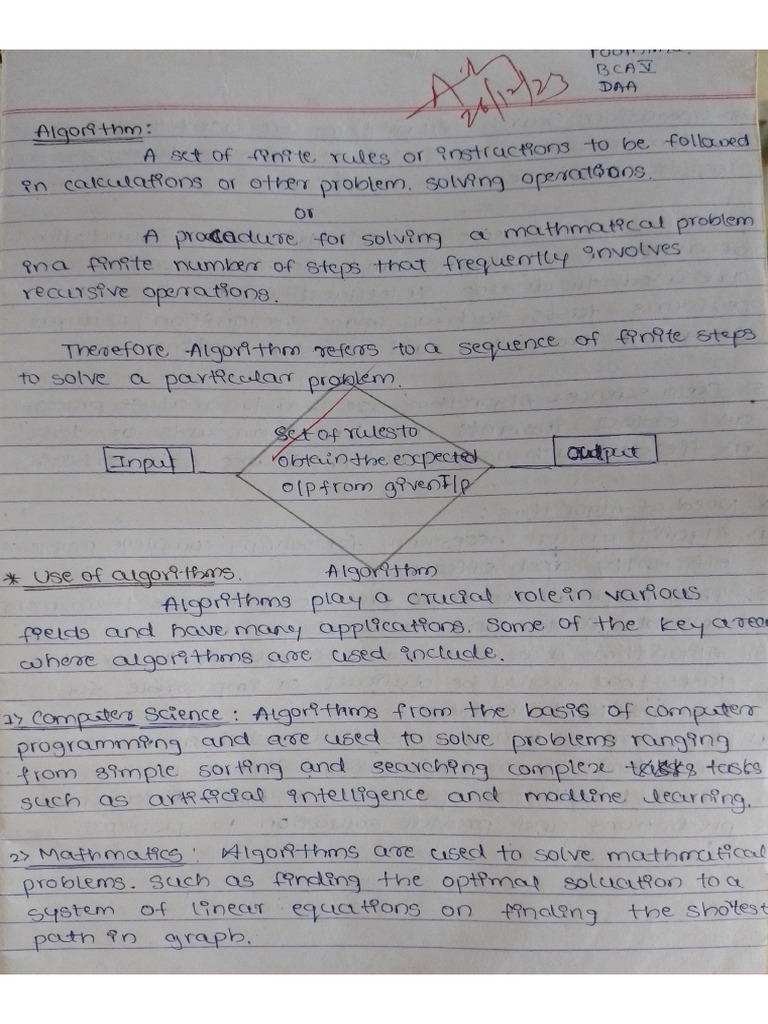 BCA V
DAA
26/12/23
Algorithm:
A set of finite rules or instructions to be followed
in calculations or other problem. solving operations.
or
A procedure for solving a mathmatical problem
in a finite number of steps that frequently involves
recursive operations.
Therefore Algorithm refers to a sequence of finite steps
to solve a particular problem.
Input
Set of rules to
obtain the expected
o/p from given I/p
Output
Algorithm
* Use of algorithms.
Algorithms play a crucial role in various
fields and have many applications. Some of the key area
where algorithms are used include.
1> Computer Science : Algorithms from the basis of computer
programming and are used to solve problems ranging
from simple sorting and searching complex tasks
such as artificial intelligence and modline learning.
2> Mathmatics : Algorithms are used to solve mathmatical
problems. Such as finding the optimal soluation to a
system of linear equations on finding the shotest
path in graph.